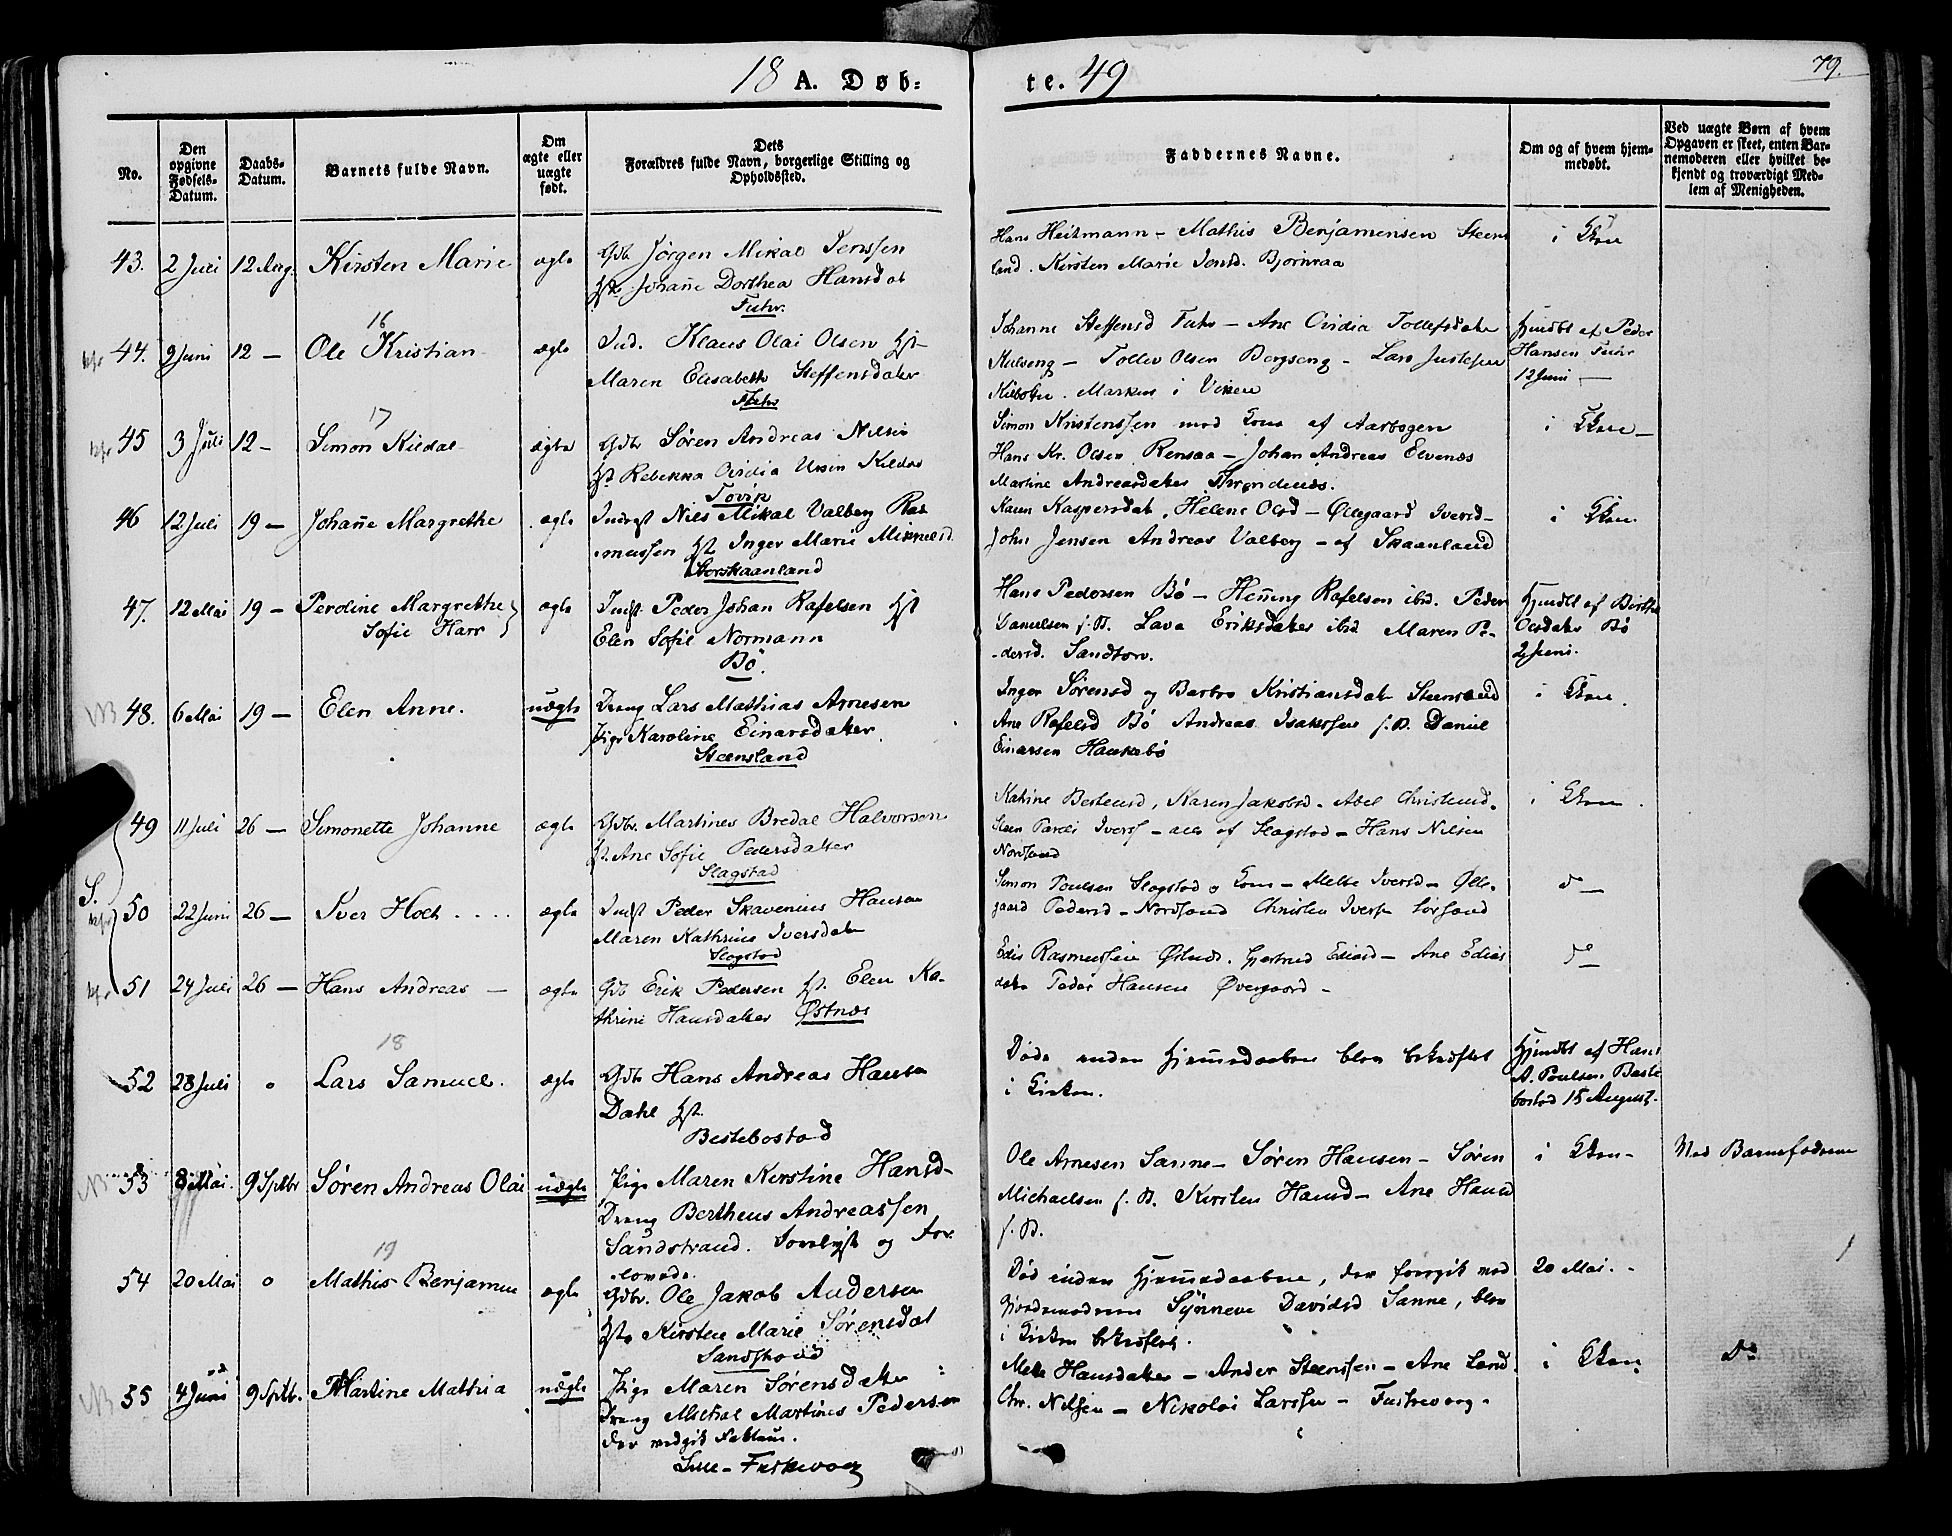 18 A. Døb-
te. 49
79.
No.
Den opgivne Fødsels-Datum.
Daabs-Datum.
Barnets fulde Navn.
Om ægte eller uægte født.
Dets
Forældres fulde Navn, borgerlige Stilling og
Opholdssted.
Faddernes Navne.
Om og af hvem hjem-
medøbt.
Ved uægte Børn af hvem
Opgaven er skeet, enten Bar-
nemoderen eller hvilket be-
kjendt og troværdigt Med-
lem af Menigheden.
43. 2 Juli 12 Aug. Kirsten Marie ægte Gdbr Jørgen Mikal Jenssen
Johañe Dorthea Hansdat
Fuhr.
Hans Heitmann - Mathis Benjamensen Steens
land. Kirsten Marie Jensd. Bjornraa
i
16
44. 9 Juni 12 - Ole Kristian ægte Ind. Klaus Olai Olsen Hst
Maren Elisabeth Steffensdatter
Fuhr
Johanne Steffensd Fuhr - Ane Ovidia Tollefsdatter
- Tollev Olsen Bergseng - Lars Justesen
Kilbotn. Markus i Viken
Hjmdbt af Peder
Hansen Fuhr
12 Juni -
17
45 3 Juli 12 - Simon Kildal ægte Gdbr Søren Andreas Nilsen
Hst Rebekka Ovidia Ursin Kildal
Tovik
Simon Kristenssen med Kone af Aarbogen
Hans Kr. Olsen Rensaa - Johan Andreas Elvenæs
Martine Andreasdatter Throndenæs.
i
46 12 Juli 19 - Johañe Margrethe ægte Indrst Nils Mikal Valberg Ras
mussen Hst Inger Marie Mikkelsd.
Storskaanland
Karen Kaspersdat, Helene Olsd - Øllegaard Iversd -
John Jensen Andreas Valberg - af Skaanland
i
47. 12 Mai 19 - Perdine Margrethe
Sofie Harr
ægte Indst Peder Johan Rafelsen Hst
Elen Sofie Normann
Bø.
Hans Pedersen Bø - Heñing Rafelsen ibid. Peder
Danielsen s. St. Lava Eriksdatter ibid Maren Pe-
dersd. Sandtorv.
Hjmdbt af Birthe
Olsdatter Bø
2 Juni.
NB 48. 6 Mai 19 - Elen Anne. uægte Dreng Lars Mathias Arnesen
Pige Karoline Einarsdatter
Steensland
Inger Sørensd og Barbro Kristiansdat Steensland
Ane Rafelsd Bø Andreas Isaksen s. St. Daniel
Einarsen Haukebø
i
49 11 Juli 26 - Simonette Johanne ægte Gdbr. Martines Bredal Halvorsen
Hst. Ane Sofie Pedersdatter
Slagstad
Karen Jakobsd. Abel
Iverss - alle af Slagstad - Hans Nilsen
Nordsand
i
S.
50 22 Juni 26 - Iver Holt .... ægte Indst Peder Skavenius Hansen
Maren Kathrine Iversdatter
Slagstad
Simon Poulsen Slagstad og Kone - Mette Iversd - Ølle-
gaard Pedersd - Nordsand Christen Iverss Sørsand
do -
51 24 Juli 26 - Hans Andreas - ægte Gdbr Erik Pedersen Hst. Elen Ka-
thrine Hansdatter Østnæs
Edis Rasmussen Østnæs. Gjertrud Edisd - Ane Edias
datter Peder Hansen Øvergaard -
do -
18
52 28 Juli o Lars Samuel. ægte Gdbr Hans Andreas Hansen
Dahl Hst.
Bestebostad
Døde inden Hjemmedaaben blev bekræftet
i Kirken.
Hjmdbt af Hans
A. Poulsen Beste
bostad 15 August.
NB 53 8 Mai. 9 Sptbr Søren Andreas Olai uægte Pige Maren Kirstine Hansd-
Dreng Bertheus Andreassen
Sandstrand. og for
lovede.
Ole Arnesen Sanne - Søren Hansen - Søren
Michaelsen s. St. Kirsten Hansd - Ane Hansd
s. St.
i
Ved Barnefaderen
19
54 20 Mai o Mathis Benjamin ægte Gdbr. Ole Jakob Andersen
Kirsten Marie Sørensdat
Død inden Hjemmedaaben, der foregik ved
Gjordemoderen Synneve Davidsd Sanne, blev
i Kirken bekræftet.
20 Mai.
NB 55 4 Juni 9 Sptbr. Martine Mathia uægte Pige Maren Sørensdatter
Dreng Michal Martines Pedersen
der vedgik Faktum.
Lille-Fuskevaag
Mette Hansdatter - Ander Steenssen - Ane
Chr. Nilsen - Nikolai Larssen - Fuskevaag -
i
Do